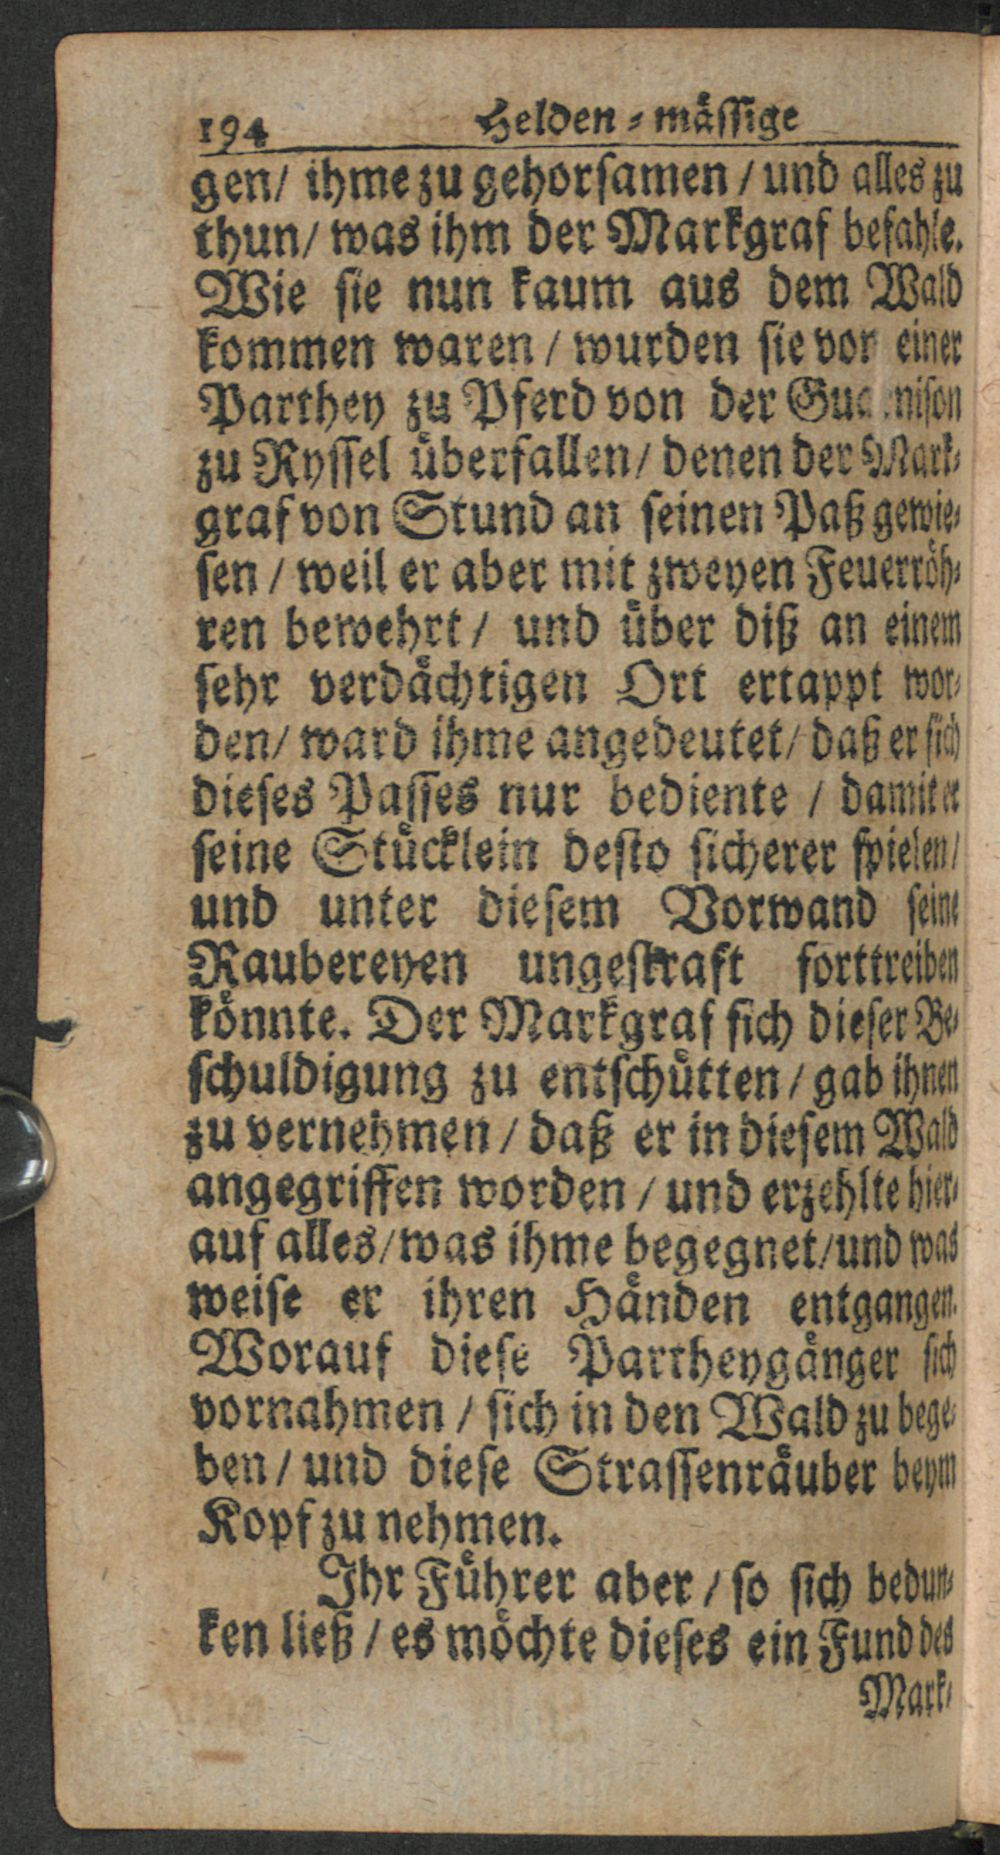 194 Helden-mässige
gen/ ihme zu gehorsamen / und alles zu
thun/ was ihm der Markgraf befahle.
Wie sie nun kaum aus dem Wald
kommen waren / wurden sie vor einer
Parthey zu Pferd von der
zu Ryssel überfallen/ denen der Mark-
graf von Stund an seinen Paß gewie-
sen / weil er aber mit zweyen Feuerröh-
ren bewehrt / und über diß an einem
sehr verdächtigen Ort ertappt wor-
den/ ward ihme angedeutet/ daß er sich
dieses Passes nur bediente / damit er
seine Stücklein desto sicherer spielen/
und unter diesem Vorwand seine
Raubereyen ungestraft forttreiben
könnte. Der Markgraf sich dieser Be-
schuldigung zu entschütten / gab ihnen
zu vernehmen / daß er in diesem Wald
angegriffen worden / und erzehlte hier-
auf alles/ was ihme begegnet/ und was
weise er ihren Händen entgangen.
Worauf diese Partheygänger sich
vornahmen / sich in den Wald zu bege-
ben / und diese Strassenräuber beym
Kopf zu nehmen.
Ihr Führer aber / so sich bedun-
ken ließ / es möchte dieses ein Fund des
Mark-